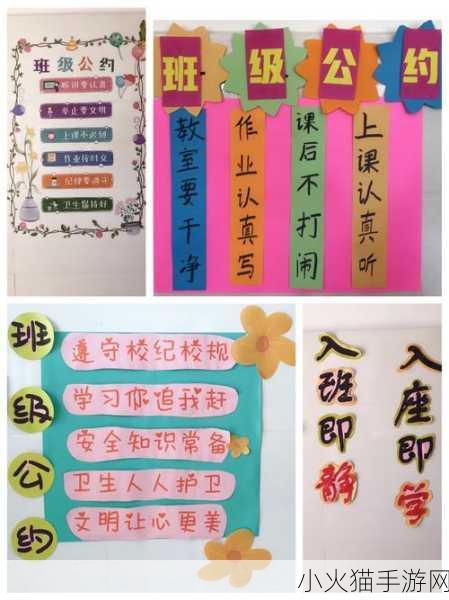 班级公约
听讲要认真
举止要文明
上课不迟到
作业按时交
纪律要遵守
卫生保持好
班级公约
教室要干净
作业认真写
课后不打闹
上课认真听
班级公约
遵守校纪校规
学习你追我赶
安全知识常备
卫生人人护卫
文明让心更美
入班即静
入座即学
小火猫手游网